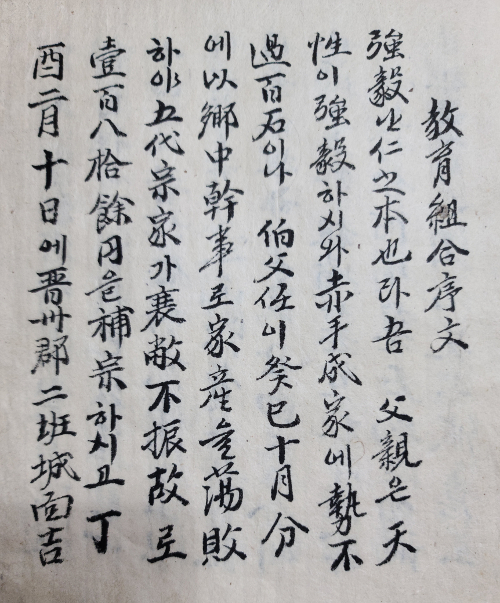 敎育組合序文
強毅난仁之本也라吾 父親은天
性이強毅하시와赤手成家에勢不
過百石이나 伯父任이癸巳十月分
에以鄕中幹事로家産을蕩敗
하야五代宗家가衰敝不振故로
壹百八拾餘円을補宗하시고丁
酉二月十日에晋州郡二班城面吉